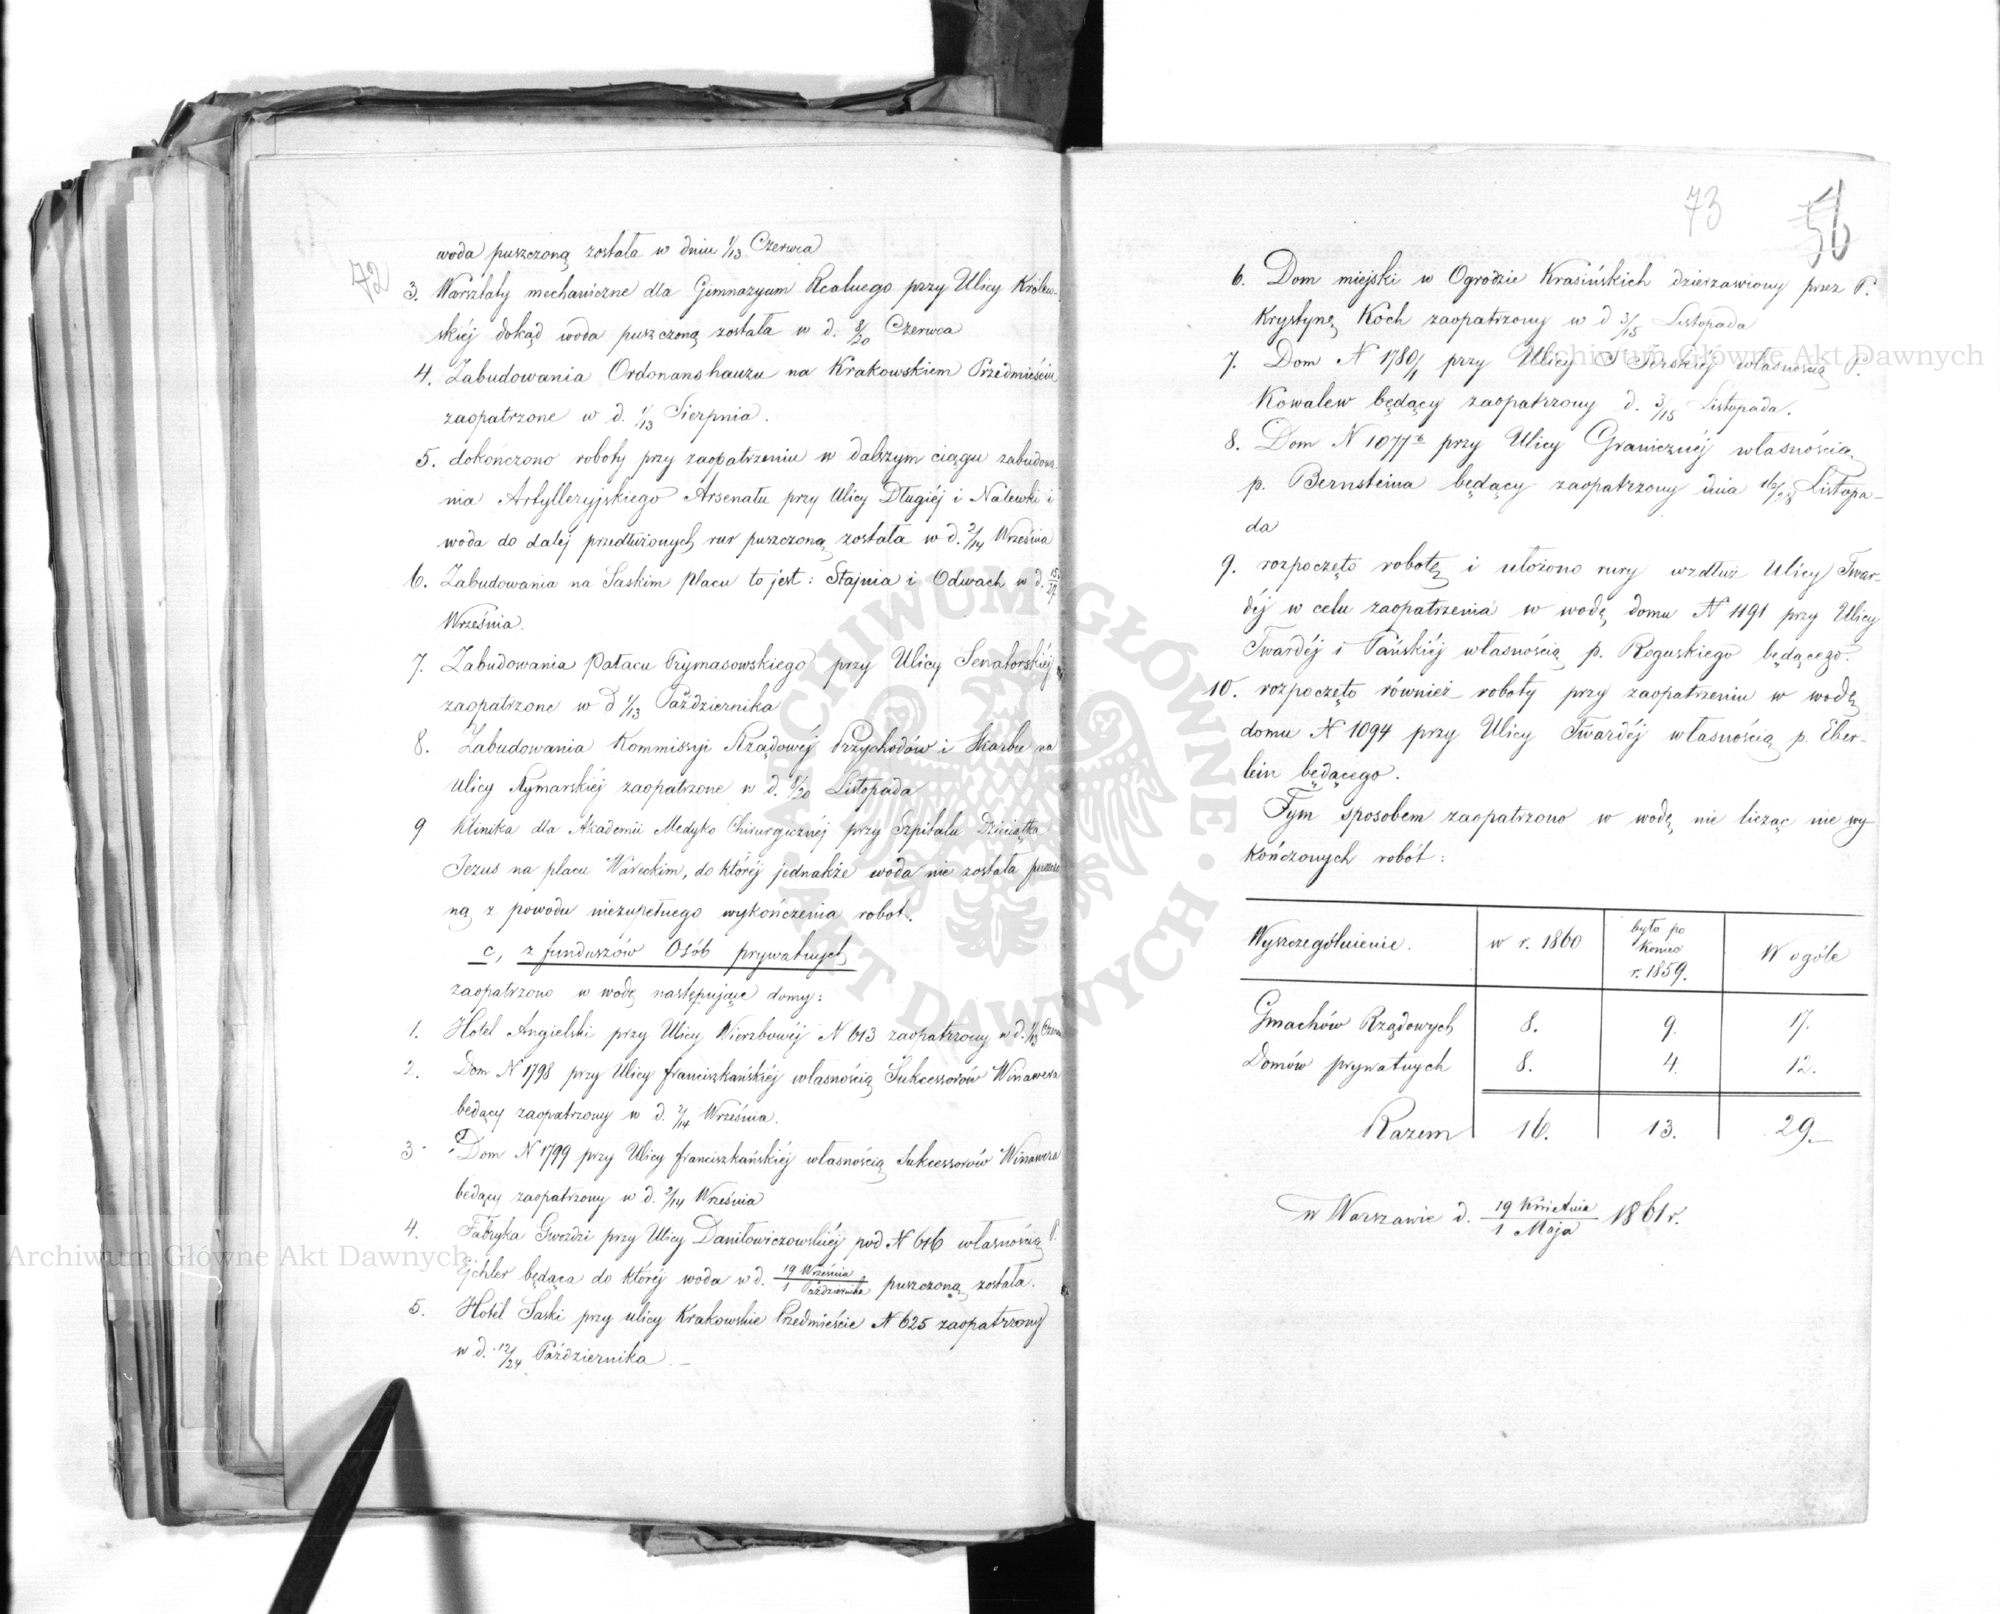 72
woda puszczoną została w dniu 1/13 Czerwca
3. Warsztaty mechaniczne dla Gimnazyum Realnego przy Ulicy Królew-
skiéj dokąd woda puszczoną została w d. 8/20 Czerwca
4. Zabudowania Ordonanshauzu na Krakowskiem Przedmieściu
zaopatrzone w d. 1/13 Sierpnia.
5. dokończono roboty przy zaopatrzeniu w dalszym ciągu zabudowa-
nia Artylleryjskiego Arsenału przy Ulicy Długiéj i Nalewki i
woda do daléj przedłużonych rur puszczoną została w d. 2/14 Września
6. Zabudowania na Saskim Placu to jest: Stajnia i Odwach w d. 15/27
Września.
7. Zabudowania Pałacu Prymasowskiego przy Ulicy Senatorskiéj
zaopatrzone w d 1/13 Października
8. Zabudowania Kommissyi Rządowéj Przychodów i Skarbu na
Ulicy Rymarskiéj zaopatrzone w d. 8/20 Listopada
9 Klinika dla Akademii Medyko Chirurgicznéj przy Szpitalu Dzieciątka
Jezus na placu Wareckim, do któréj jednakże woda nie została puszczo
ną z powodu niezupełnego wykończenia robot.
c, z funduszów Osób prywatnych
zaopatrzono w wodę następujące domy:
1. Hotel Angielski przy Ulicy Wierzbowéj N 613 zaopatrzony w d. 1/13 Czerw
2. Dom N 1798 przy Ulicy franciszkańskiéj własnością Sukcessorów Winawera
będący zaopatrzony w d. 2/14 Września.
3 Dom N 1799 przy Ulicy franciszkańskiéj własnością Sukcessorów Winawera
będący zaopatrzony w d. 2/14 Września
4. Fabryka Gwoździ przy Ulicy Daniłowiczowskiéj pod N 616 własnością P.
Ejchler będąca do któréj woda w d. 19 Września / 1 Października puszczoną została.
5. Hotel Saski przy ulicy Krakowskie Przedmieście N 625 zaopatrzony
w d. 12/24 Października. –
73 56
6. Dom miejski w Ogrodzie Krasińskich dzierzawiony przez P.
Krystynę Koch zaopatrzony w d 3/15 Listopada
7. Dom N 1780/1 przy Ulicy własnością P.
Kowalew będący zaopatrzony d. 3/15 Listopada.
8. Dom N 1077 przy Ulicy Granicznéj własnością
p. Bernsteina będący zaopatrzony dnia 16/28 Listopa-
da
9. rozpoczęto robotę i ułożono rury wzdłuż Ulicy Twar-
déj w celu zaopatrzenia w wodę domu N 1191 przy Ulicy
Twardéj i Pańskiéj własnością p. Roguskiego będącego.
10. rozpoczęto również roboty przy zaopatrzeniu w wodę
domu N 1094 przy Ulicy Twardéj własnością p. Eber-
lein będącego.
Tym sposobem zaopatrzono w wodę nie licząc nie wy-
kończonych robót:
Wyszczególnienie. w r. 1860 było po koniec r. 1859. W ogóle
Gmachów Rządowych 8. 9. 17.
Domów prywatnych 8. 4. 12.
Razem 16. 13. 29.–
w Warszawie d. 19 Kwietnia / 1 Maja 1861 r.
Archiwum Główne Akt Dawnych
Archiwum Główne Akt Dawnych
ARCHIWUM GŁÓWNE · AKT DAWNYCH ·